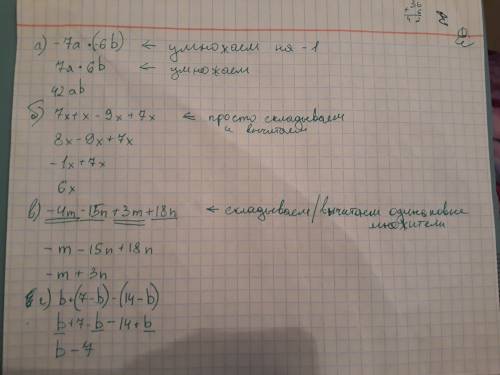 а) -7a·(-6b) ← умножаем на -1
7a·6b ← умножаем
42ab
б) 7x+x-9x+7x ← просто складываем
и вычитаем
8x-9x+7x
-1x+7x
6x
в) -4m-15n+3m+18n ← складываем/вычитаем одинаковые
множители
-m-15n+18n
-m+3n
г) b+(7-b)-(14-b)
b+7-b-14+b
b-7